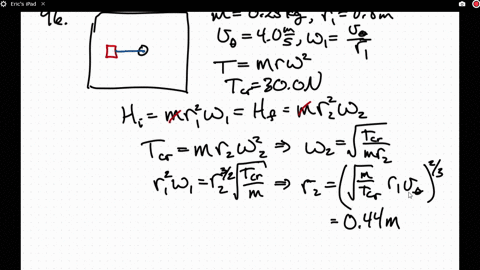 Eric's iPad
96.
m = 0.25kg, r₁ = 0.8m
v_θ = 4.0 m/s, ω₁ = v_θ/r₁
T = mrω²
T_cr = 30.0N
H_i = mr₁²ω₁ = H_f = mr₂²ω₂
T_cr = mr₂ω₂² ⇒ ω₂ = √(T_cr/mr₂)
r₁²ω₁ = r₂^(3/2) √(T_cr/m) ⇒ r₂ = (√(m/T_cr) r₁v_θ)^(2/3)
= 0.44m